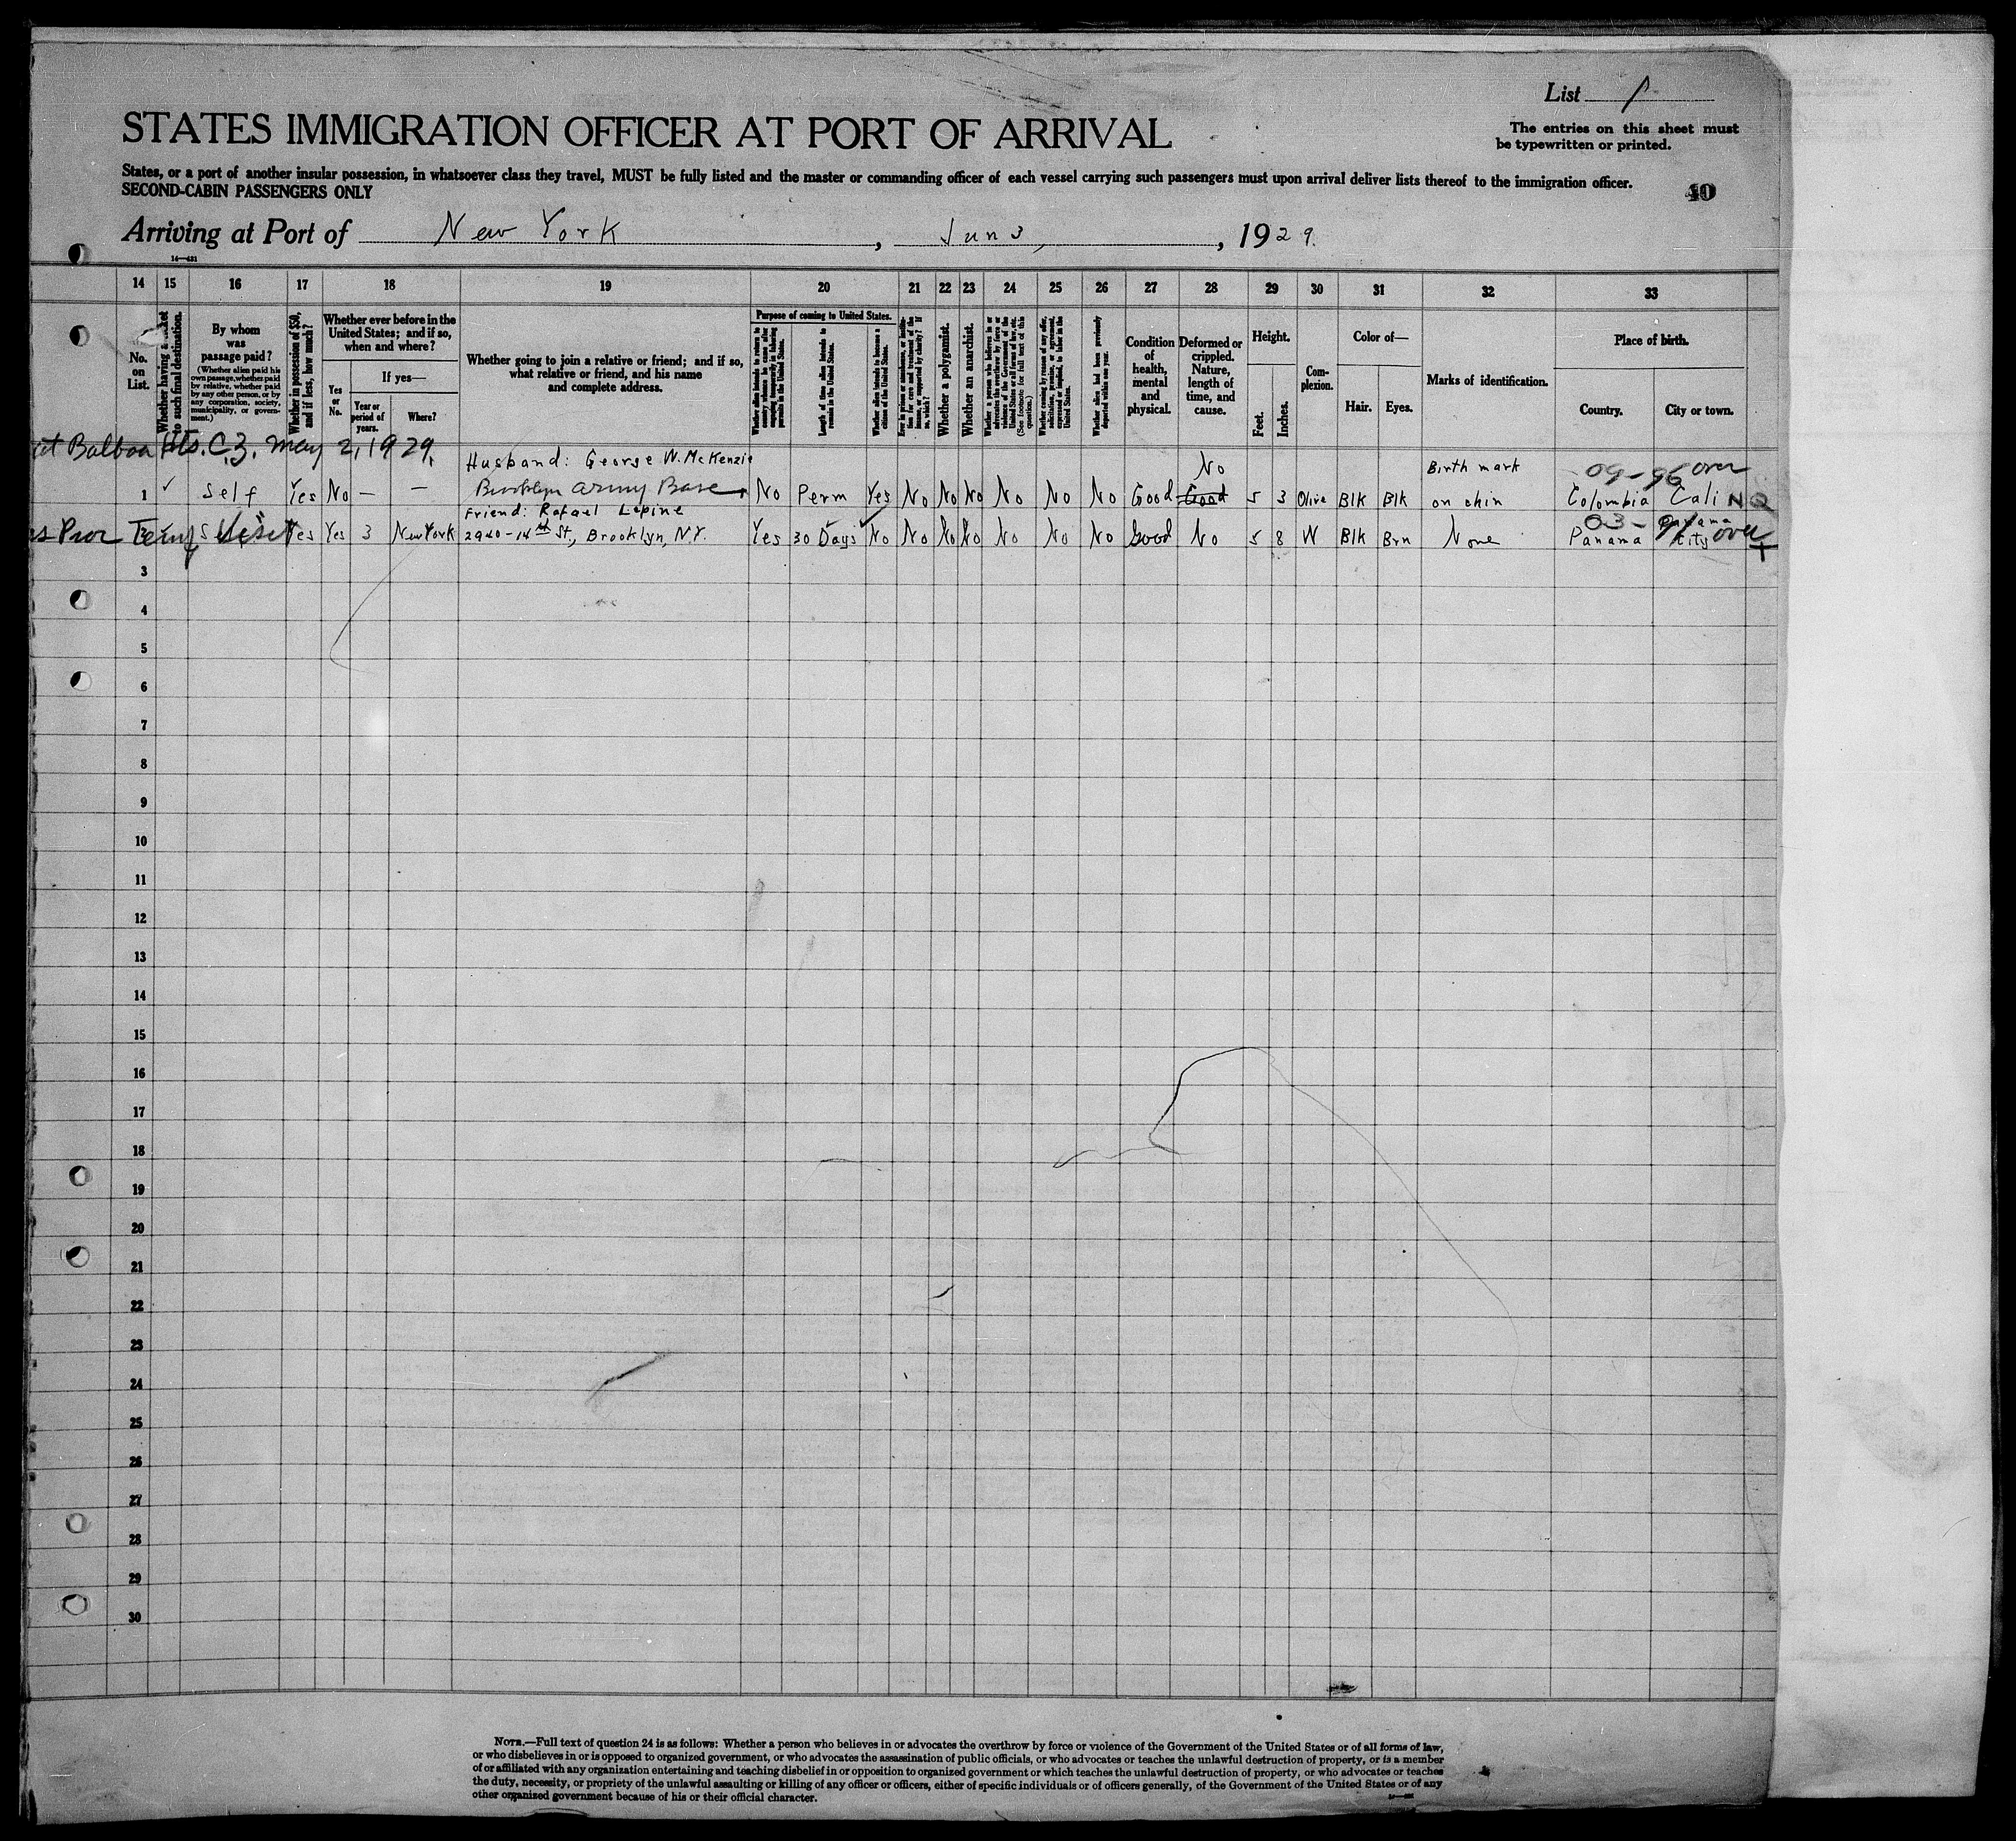 List 1
STATES IMMIGRATION OFFICER AT PORT OF ARRIVAL
The entries on this sheet must
be typewritten or printed.
States, or a port of another insular possession, in whatsoever class they travel, MUST be fully listed and the master or commanding officer of each vessel carrying such passengers must upon arrival deliver lists thereof to the immigration officer.
SECOND-CABIN PASSENGERS ONLY
40
Arriving at Port of New York, Jun 3, 1929.
14—431
14 15 16 17 18 19 20 21 22 23 24 25 26 27 28 29 30 31 32 33
No. on List.
Whether having a ticket to such final destination.
By whom was passage paid?
(Whether alien paid his own passage, whether paid by relative, whether paid by any other person, or by any corporation, society, municipality, or government.)
Whether in possession of $50, and if less, how much?
Whether ever before in the United States; and if so, when and where?
Yes or No.
If yes—
Year or period of years.
Where?
Whether going to join a relative or friend; and if so, what relative or friend, and his name and complete address.
Purpose of coming to United States.
Whether alien intends to return to country whence he came after engaging temporarily in laboring pursuits in the United States.
Length of time alien intends to remain in the United States.
Whether alien intends to become a citizen of the United States.
Whether a polygamist.
Whether an anarchist.
(See footnote for full text of this question.)
Whether alien had been previously deported within one year.
Condition of health, mental and physical.
Deformed or crippled. Nature, length of time, and cause.
Height.
Feet.
Inches.
Complexion.
Color of—
Hair.
Eyes.
Marks of identification.
Place of birth.
Country.
City or town.
at Balboa Hts. C.Z. May 2, 1929.
Husband: George W. McKenzie No Birth mark 09-96 over
1 ✓ Self Yes No — — Brooklyn Army Base No Perm Yes No No No No No No Good Good 5 3 Olive Blk Blk on chin Colombia Cali N Q
Friend: Rafael Lepine 03- Panama
Temp Visit Yes Yes 3 New York 2940-14th St., Brooklyn, N.Y. Yes 30 Days No No No No No No No Good No 5 8 W Blk Brn None Panama City over
3
4
5
6
7
8
9
10
11
12
13
14
15
16
17
18
19
20
21
22
23
24
25
26
27
28
29
30
NOTE.—Full text of question 24 is as follows: Whether a person who believes in or advocates the overthrow by force or violence of the Government of the United States or of all forms of law,
or who disbelieves in or is opposed to organized government, or who advocates the assassination of public officials, or who advocates or teaches the unlawful destruction of property, or is a member
of or affiliated with any organization entertaining and teaching disbelief in or opposition to organized government or which teaches the unlawful destruction of property, or who advocates or teaches
the duty, necessity, or propriety of the unlawful assaulting or killing of any officer or officers, either of specific individuals or of officers generally, of the Government of the United States or of any
other organized government because of his or their official character.